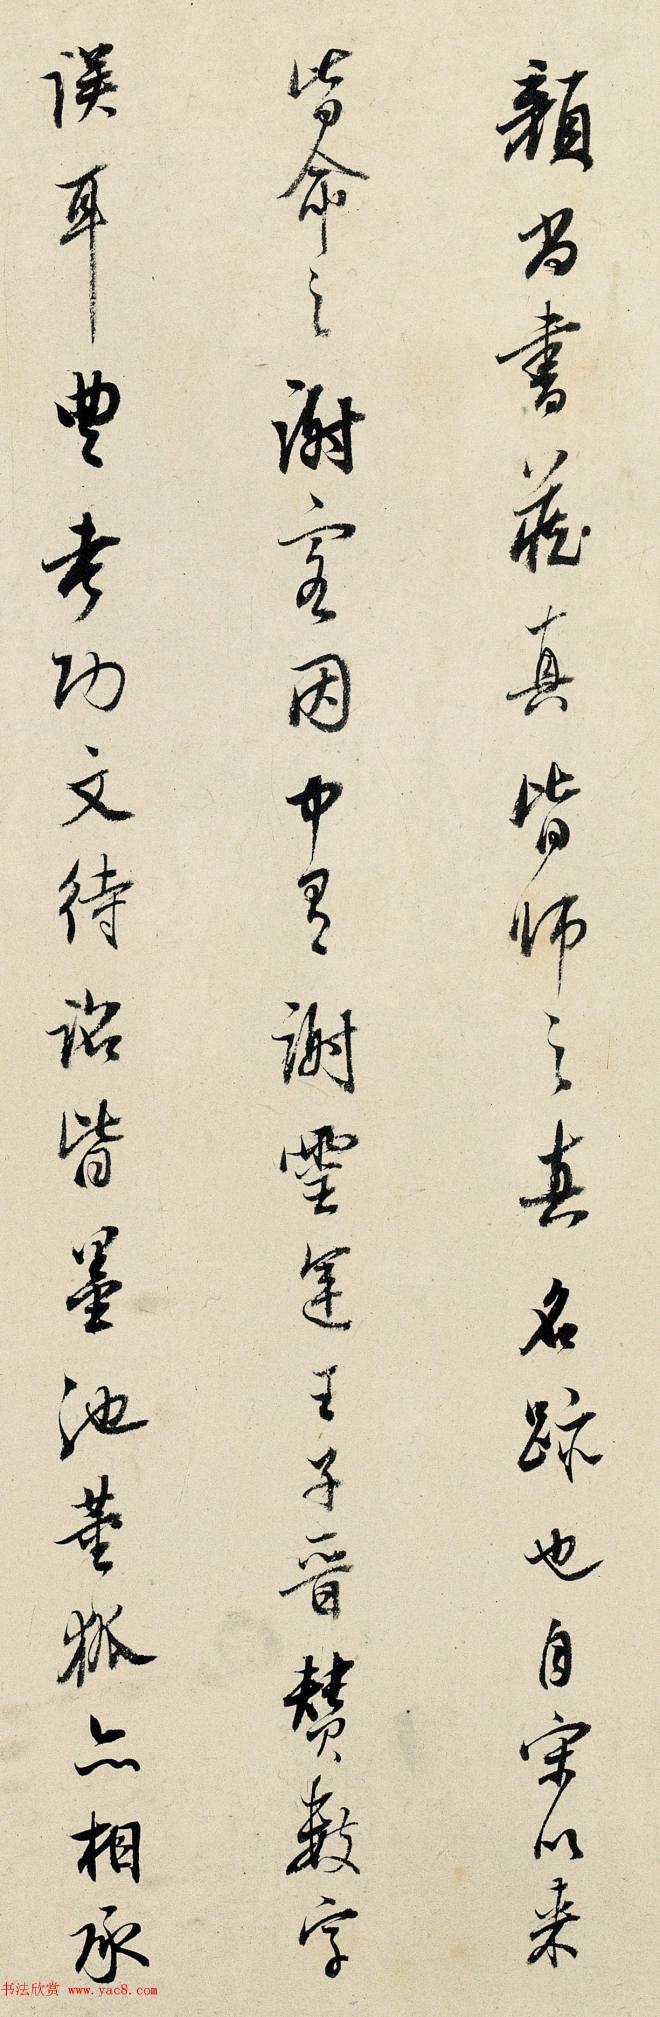 顏尚書藏真皆師之真名跡也自宋以來
皆命之謝客因中有謝靈運王子晉贊數字
誤耳豊考功文待詔皆墨池董狐亦相承
书法欣赏 www.yac8.com